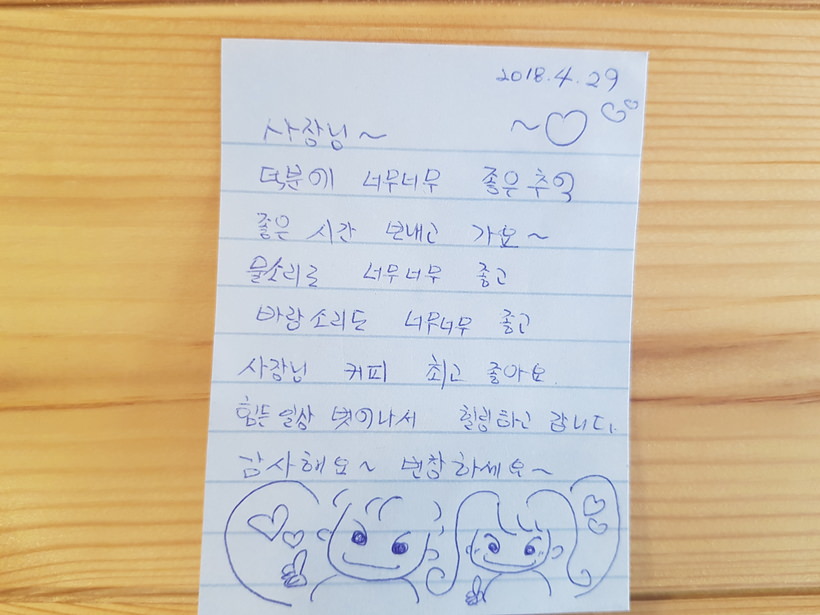 2018.4.29
사장님~ ~♡
덕분에 너무너무 좋은추억
좋은 시간 보내고 가요~
물소리도 너무너무 좋고
바람소리도 너무너무 좋고
사장님 커피 최고 좋아요.
힘든일상 벗어나서 힐링하고 갑니다.
감사해요~ 번창하세요~